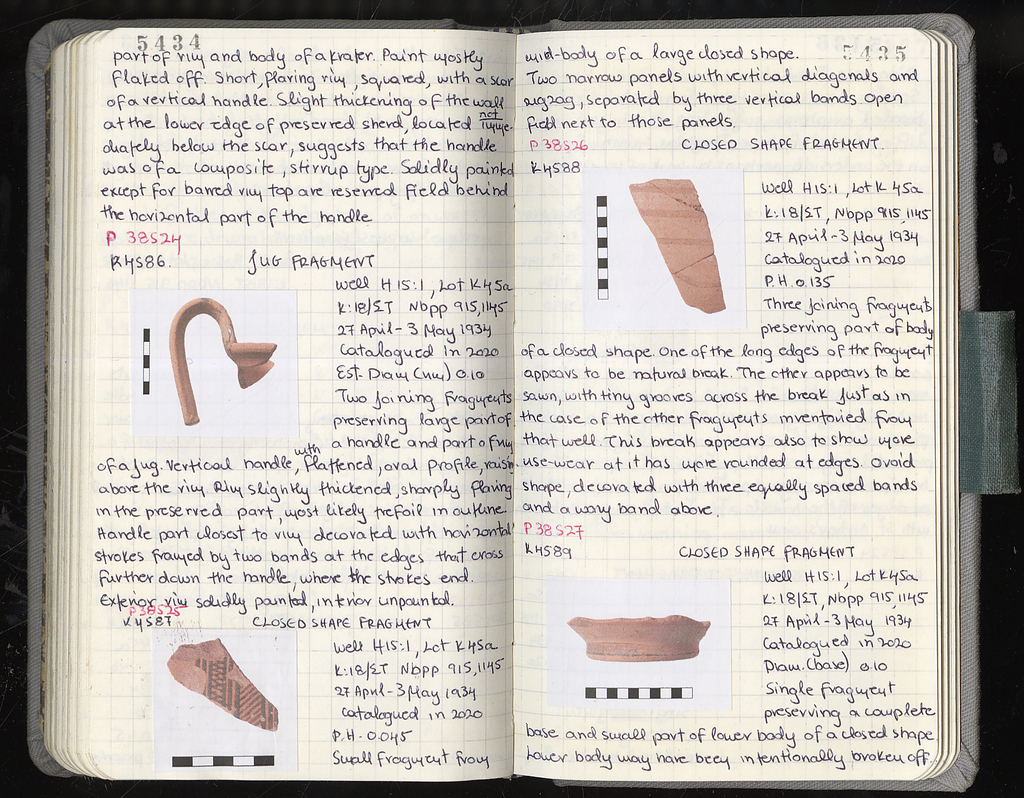 5434
part of rim and body of a krater. Paint mostly
flaked off. Short, flaring rim, squared, with a scar
of a vertical handle. Slight thickening of the wall
at the lower edge of preserved sherd, located not imme-
diately below the scar, suggests that the handle
was of a composite, stirrup type. Solidly painted
except for barred rim top are reserved field behind
the horizontal part of the handle
P 38524
K4586. JUG FRAGMENT
Well H15:1, Lot K45a
K:18/ΣT Nbpp 915, 1145
27 April - 3 May 1934
Catalogued in 2020
Est. Diam (rim) 0.10
Two joining fragments
preserving large part of
a handle and part of rim
of a jug. Vertical handle, with flattened, oval profile, raisin
above the rim. Rim slightly thickened, sharply flaring
in the preserved part, most likely trefoil in outline.
Handle part closest to rim decorated with horizontal
strokes framed by two bands at the edges that cross
further down the handle, where the strokes end.
Exterior rim solidly painted, interior unpainted.
P 38525
K4587 CLOSED SHAPE FRAGMENT
Well H15:1, Lot K45a
K:18/ΣT Nbpp 915, 1145
27 April - 3 May 1934
Catalogued in 2020
P.H. 0.045
Small fragment from
5435
mid-body of a large closed shape.
Two narrow panels with vertical diagonals and
zigzag, separated by three vertical bands open
field next to those panels.
P 38526 CLOSED SHAPE FRAGMENT.
K4588
Well H15:1, Lot K45a
K:18/ΣT, Nbpp 915, 1145
27 April - 3 May 1934
Catalogued in 2020
P.H. 0.135
Three joining fragments
preserving part of body
of a closed shape. One of the long edges of the fragment
appears to be natural break. The other appears to be
sawn, with tiny grooves across the break just as in
the case of the other fragments inventoried from
that well. This break appears also to show more
use-wear at it has more rounded at edges. Ovoid
shape, decorated with three equally spaced bands
and a wavy band above.
P 38527
K4589 CLOSED SHAPE FRAGMENT
Well H15:1, Lot K45a
K:18/ΣT, Nbpp 915, 1145
27 April - 3 May 1934
Catalogued in 2020
Diam. (base) 0.10
Single fragment
preserving a complete
base and small part of lower body of a closed shape
Lower body may have been intentionally broken off.